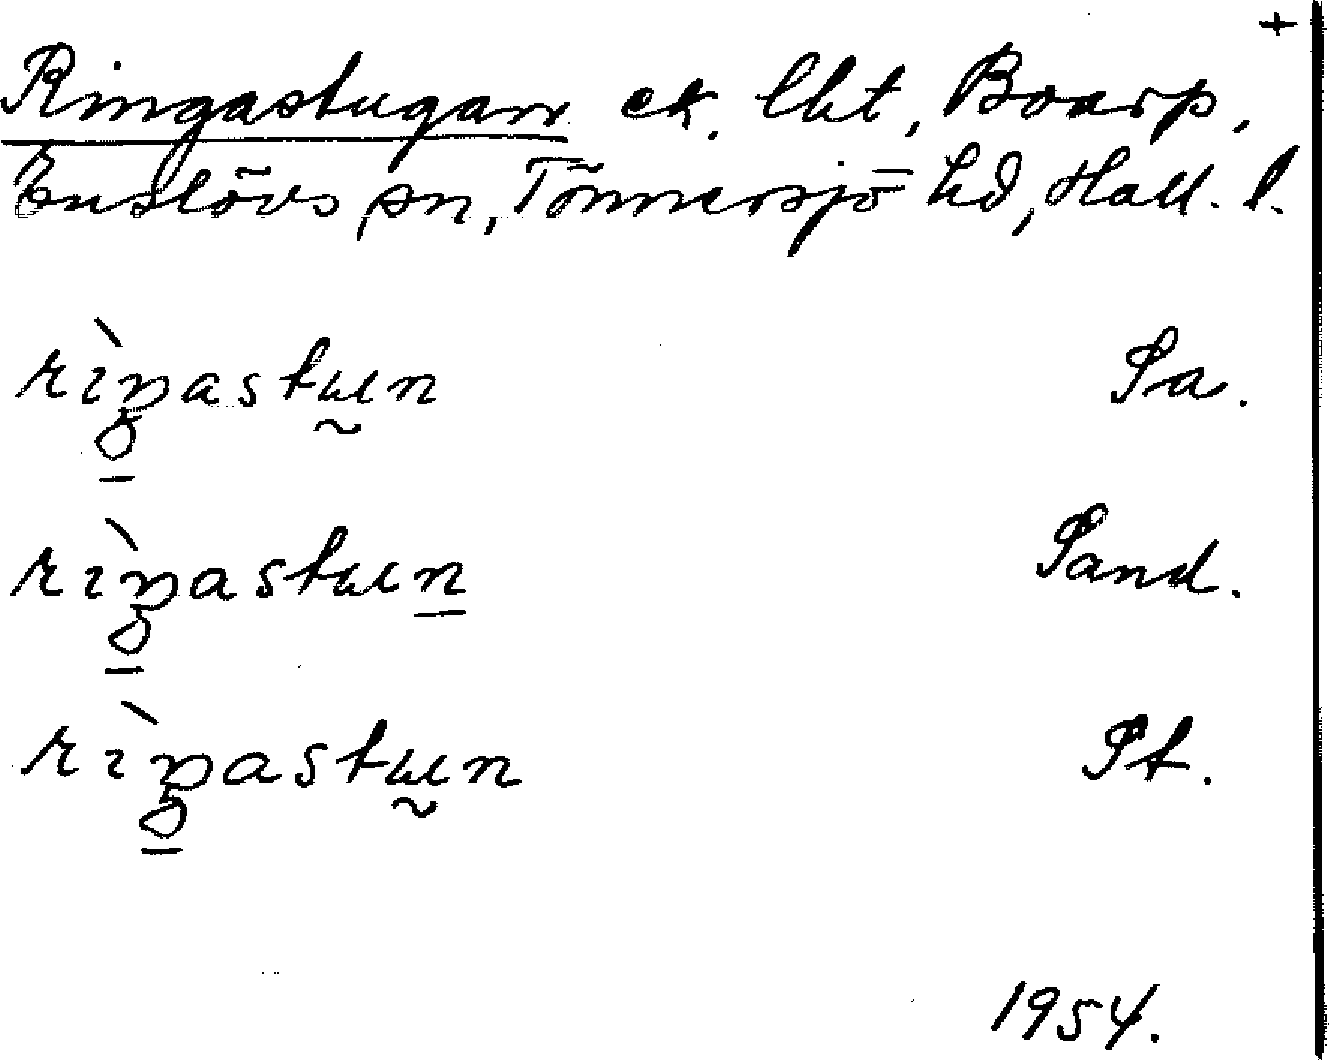 +
Ringastugan ek. lht, Boarp,
Enslövs sn, Tönnersjö hd, Hall. l.
rìŋastɯn Sa.
rìŋastɯn Sand.
rìŋastɯn St.
1954.